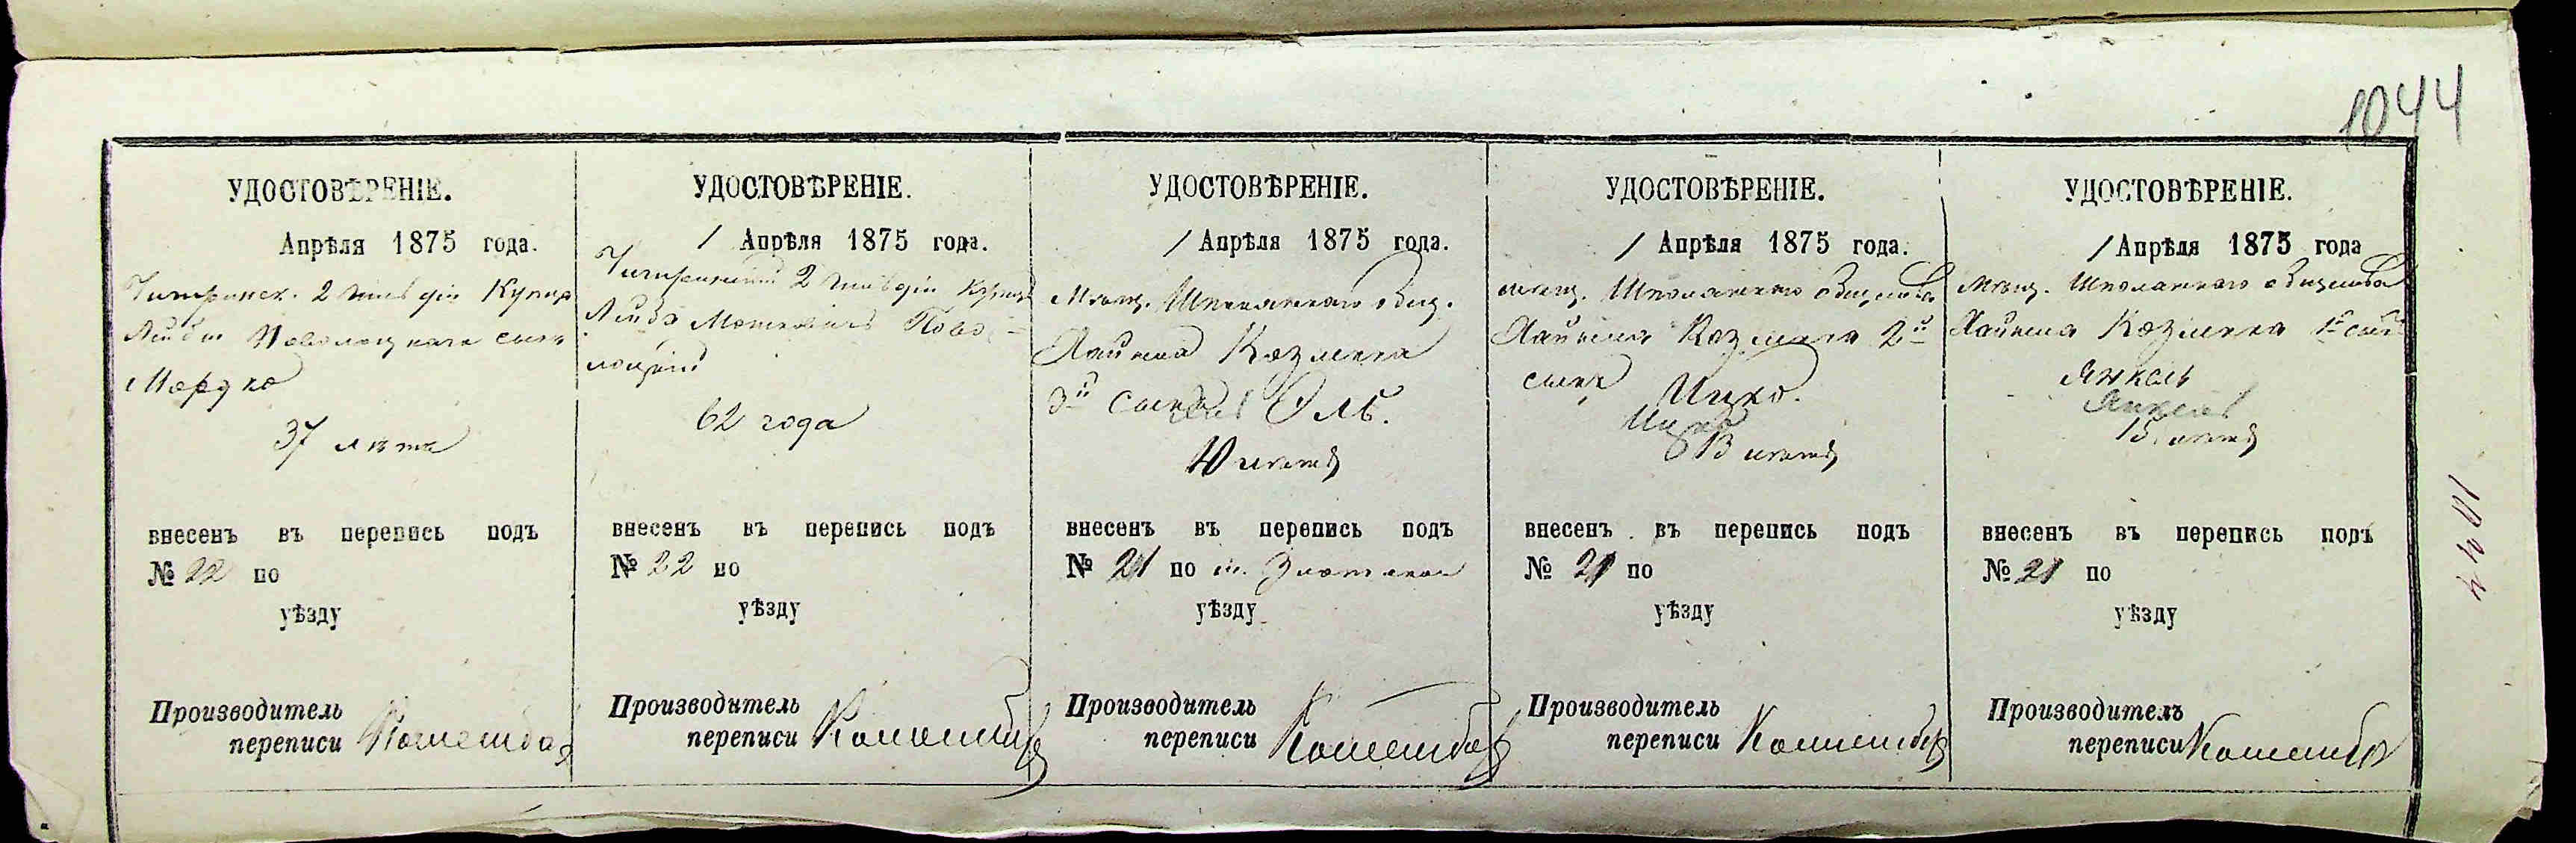 1044
УДОСТОВѢРЕНІЕ.
Апрѣля 1875 года.
Чигиринск. 2 гильдіи Купца
Лейбы Паволоцкаго сынъ
Мордко
37 лѣтъ
внесенъ въ перепись подъ
№ 22 по
уѣзду
Производитель
переписи
УДОСТОВѢРЕНІЕ.
1 Апрѣля 1875 года.
Чигиринскій 2 гильдіи Купецъ
Лейба Мошковичъ Паво-
лоцкій
62 года
внесенъ въ перепись подъ
№ 22 по
уѣзду
Производитель
переписи
УДОСТОВѢРЕНІЕ.
1 Апрѣля 1875 года.
Мѣщ. Шполянскаго общ.
Хаима Козлика
3й сынъ Эль.
10 лѣтъ
внесенъ въ перепись подъ
№ 21 по м.
уѣзду
Производитель
переписи
УДОСТОВѢРЕНІЕ.
1 Апрѣля 1875 года.
мѣщ. Шполянскаго общества
Хаима Козлика 2й
сынъ Ицко.
Ицко
13 лѣтъ
внесенъ въ перепись подъ
№ 21 по
уѣзду
Производитель
переписи
УДОСТОВѢРЕНІЕ.
1 Апрѣля 1875 года
Мѣщ. Шполянскаго общества
Хаима Козлика 1й сынъ
Янкель
Янкель
15 лѣтъ
внесенъ въ перепись подъ
№ 21 по
уѣзду
Производитель
переписи
1044